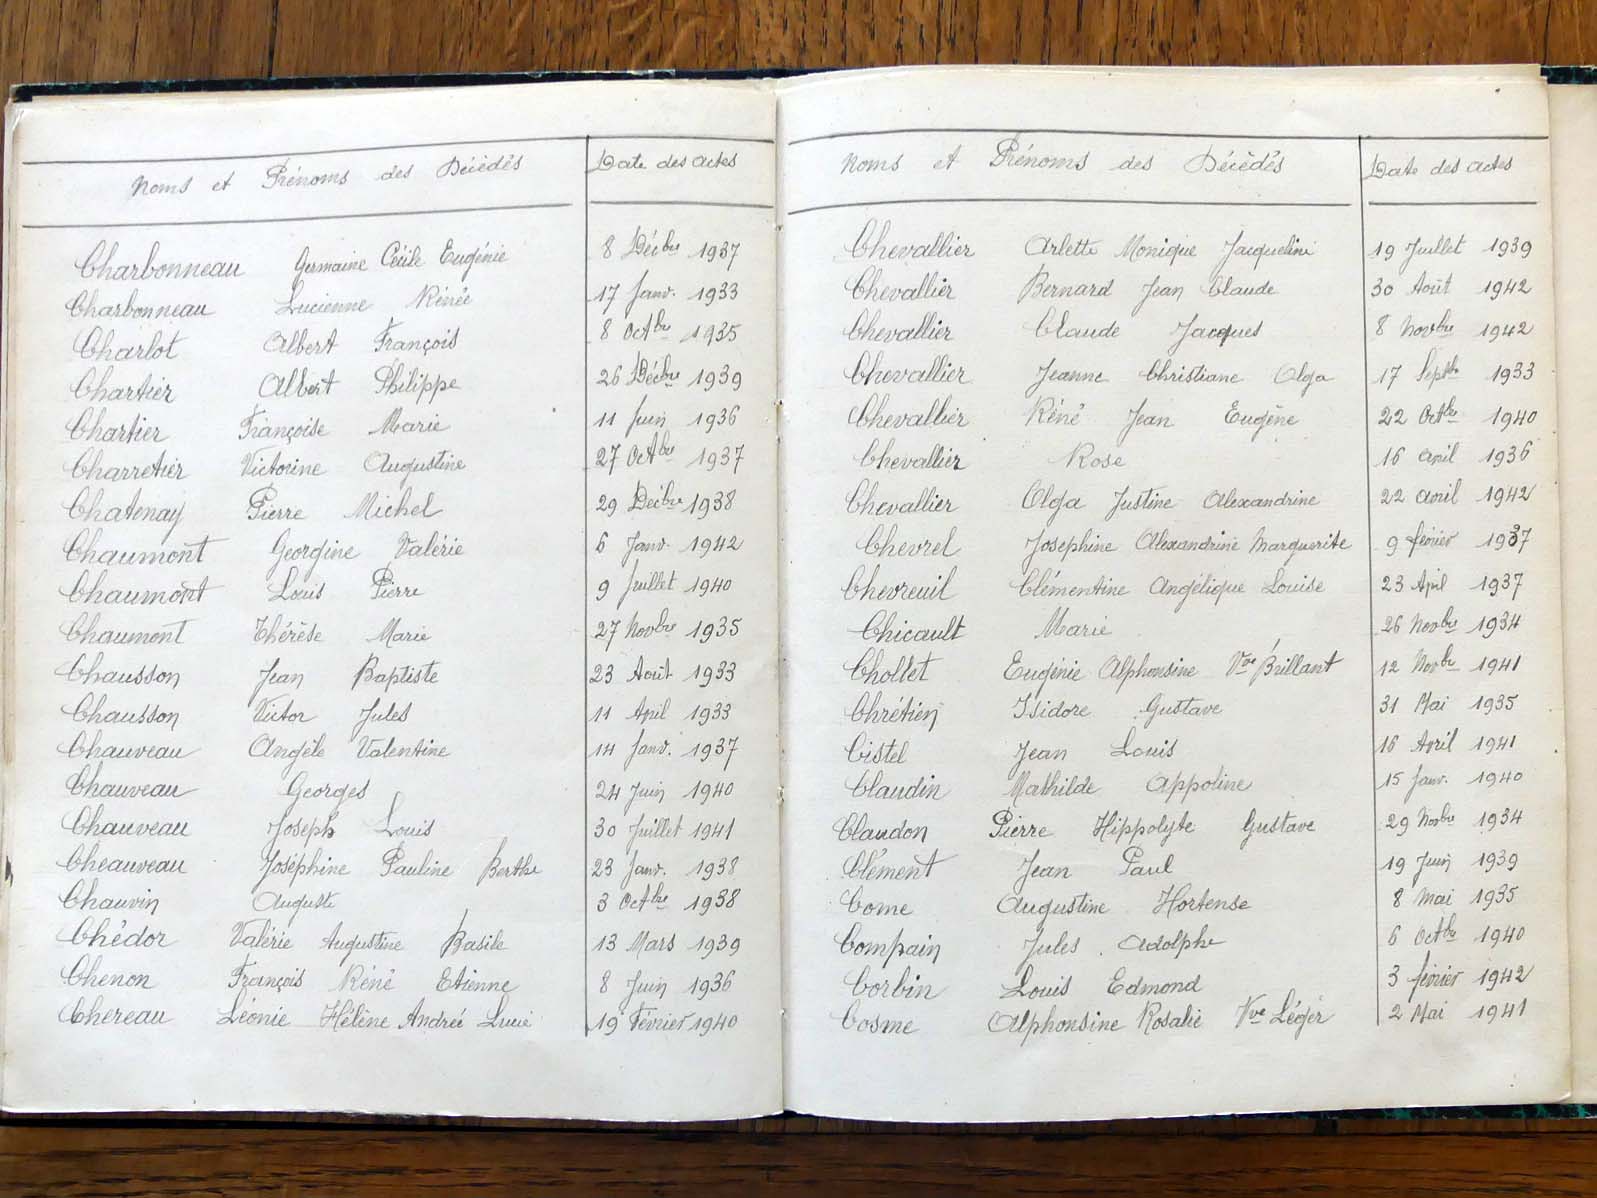 Noms et Prénoms des Décédés Date des actes
Charbonneau Germaine Cécile Eugénie 8 Décbre 1937
Charbonneau Lucienne Rénée 17 Janv. 1933
Charlot Albert François 8 Octbre 1935
Chartier Albert Philippe 26 Décbre 1939
Chartier Françoise Marie 11 Juin 1936
Charretier Victorine Augustine 27 Octbre 1937
Chatenay Pierre Michel 29 Décbre 1938
Chaumont Georgine Valérie 6 Janv. 1942
Chaumont Louis Pierre 9 Juillet 1940
Chaumont Thérèse Marie 27 Novbre 1935
Chausson Jean Baptiste 23 Août 1933
Chausson Victor Jules 11 April 1933
Chauveau Angèle Valentine 14 Janv. 1937
Chauveau Georges 24 Juin 1940
Chauveau Joseph Louis 30 Juillet 1941
Cheauveau Joséphine Pauline Berthe 23 Janv. 1938
Chauvin Auguste 3 Octbre 1938
Chédor Valérie Augustine Basile 13 Mars 1939
Chenon François Réné Etienne 8 Juin 1936
Chereau Léonie Hélène Andrée Lucie 19 Février 1940
Noms et Prénoms des Décédés Date des actes
Chevallier Arlette Monique Jacqueline 19 Juillet 1939
Chevallier Bernard Jean Claude 30 Août 1942
Chevallier Claude Jacques 8 Novbre 1942
Chevallier Jeanne Christiane Olga 17 Septbre 1933
Chevallier Réné Jean Eugène 22 Octbre 1940
Chevallier Rose 16 april 1936
Chevallier Olga Justine Alexandrine 22 avril 1942
Chevrel Josephine Alexandrine Marguerite 9 février 1937
Chevreuil Clémentine Angélique Louise 23 April 1937
Chicault Marie 26 Novbre 1934
Chollet Eugénie Alphonsine Vve Brillant 12 Novbre 1941
Chrétien Isidore Gustave 31 Mai 1935
Cistel Jean Louis 16 Avril 1941
Claudin Mathilde Appoline 15 Janv. 1940
Claudon Pierre Hippolyte Gustave 29 Novbre 1934
Clément Jean Paul 19 Juin 1939
Come Augustine Hortense 8 Mai 1935
Compain Jules Adolphe 6 Octbre 1940
Corbin Louis Edmond 3 février 1942
Cosme Alphonsine Rosalie Vve Léger 2 Mai 1941